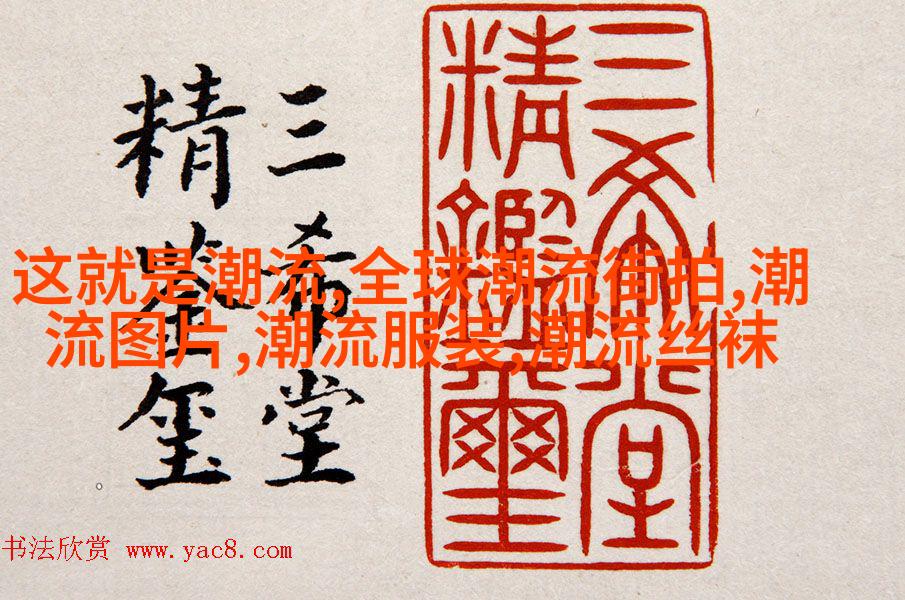 三希堂
精鉴玺
三希堂
精鑑璽
这就是潮流,全球潮流街拍,潮
流图片,潮流服装,潮流丝袜
书法欣赏 www.yac8.com